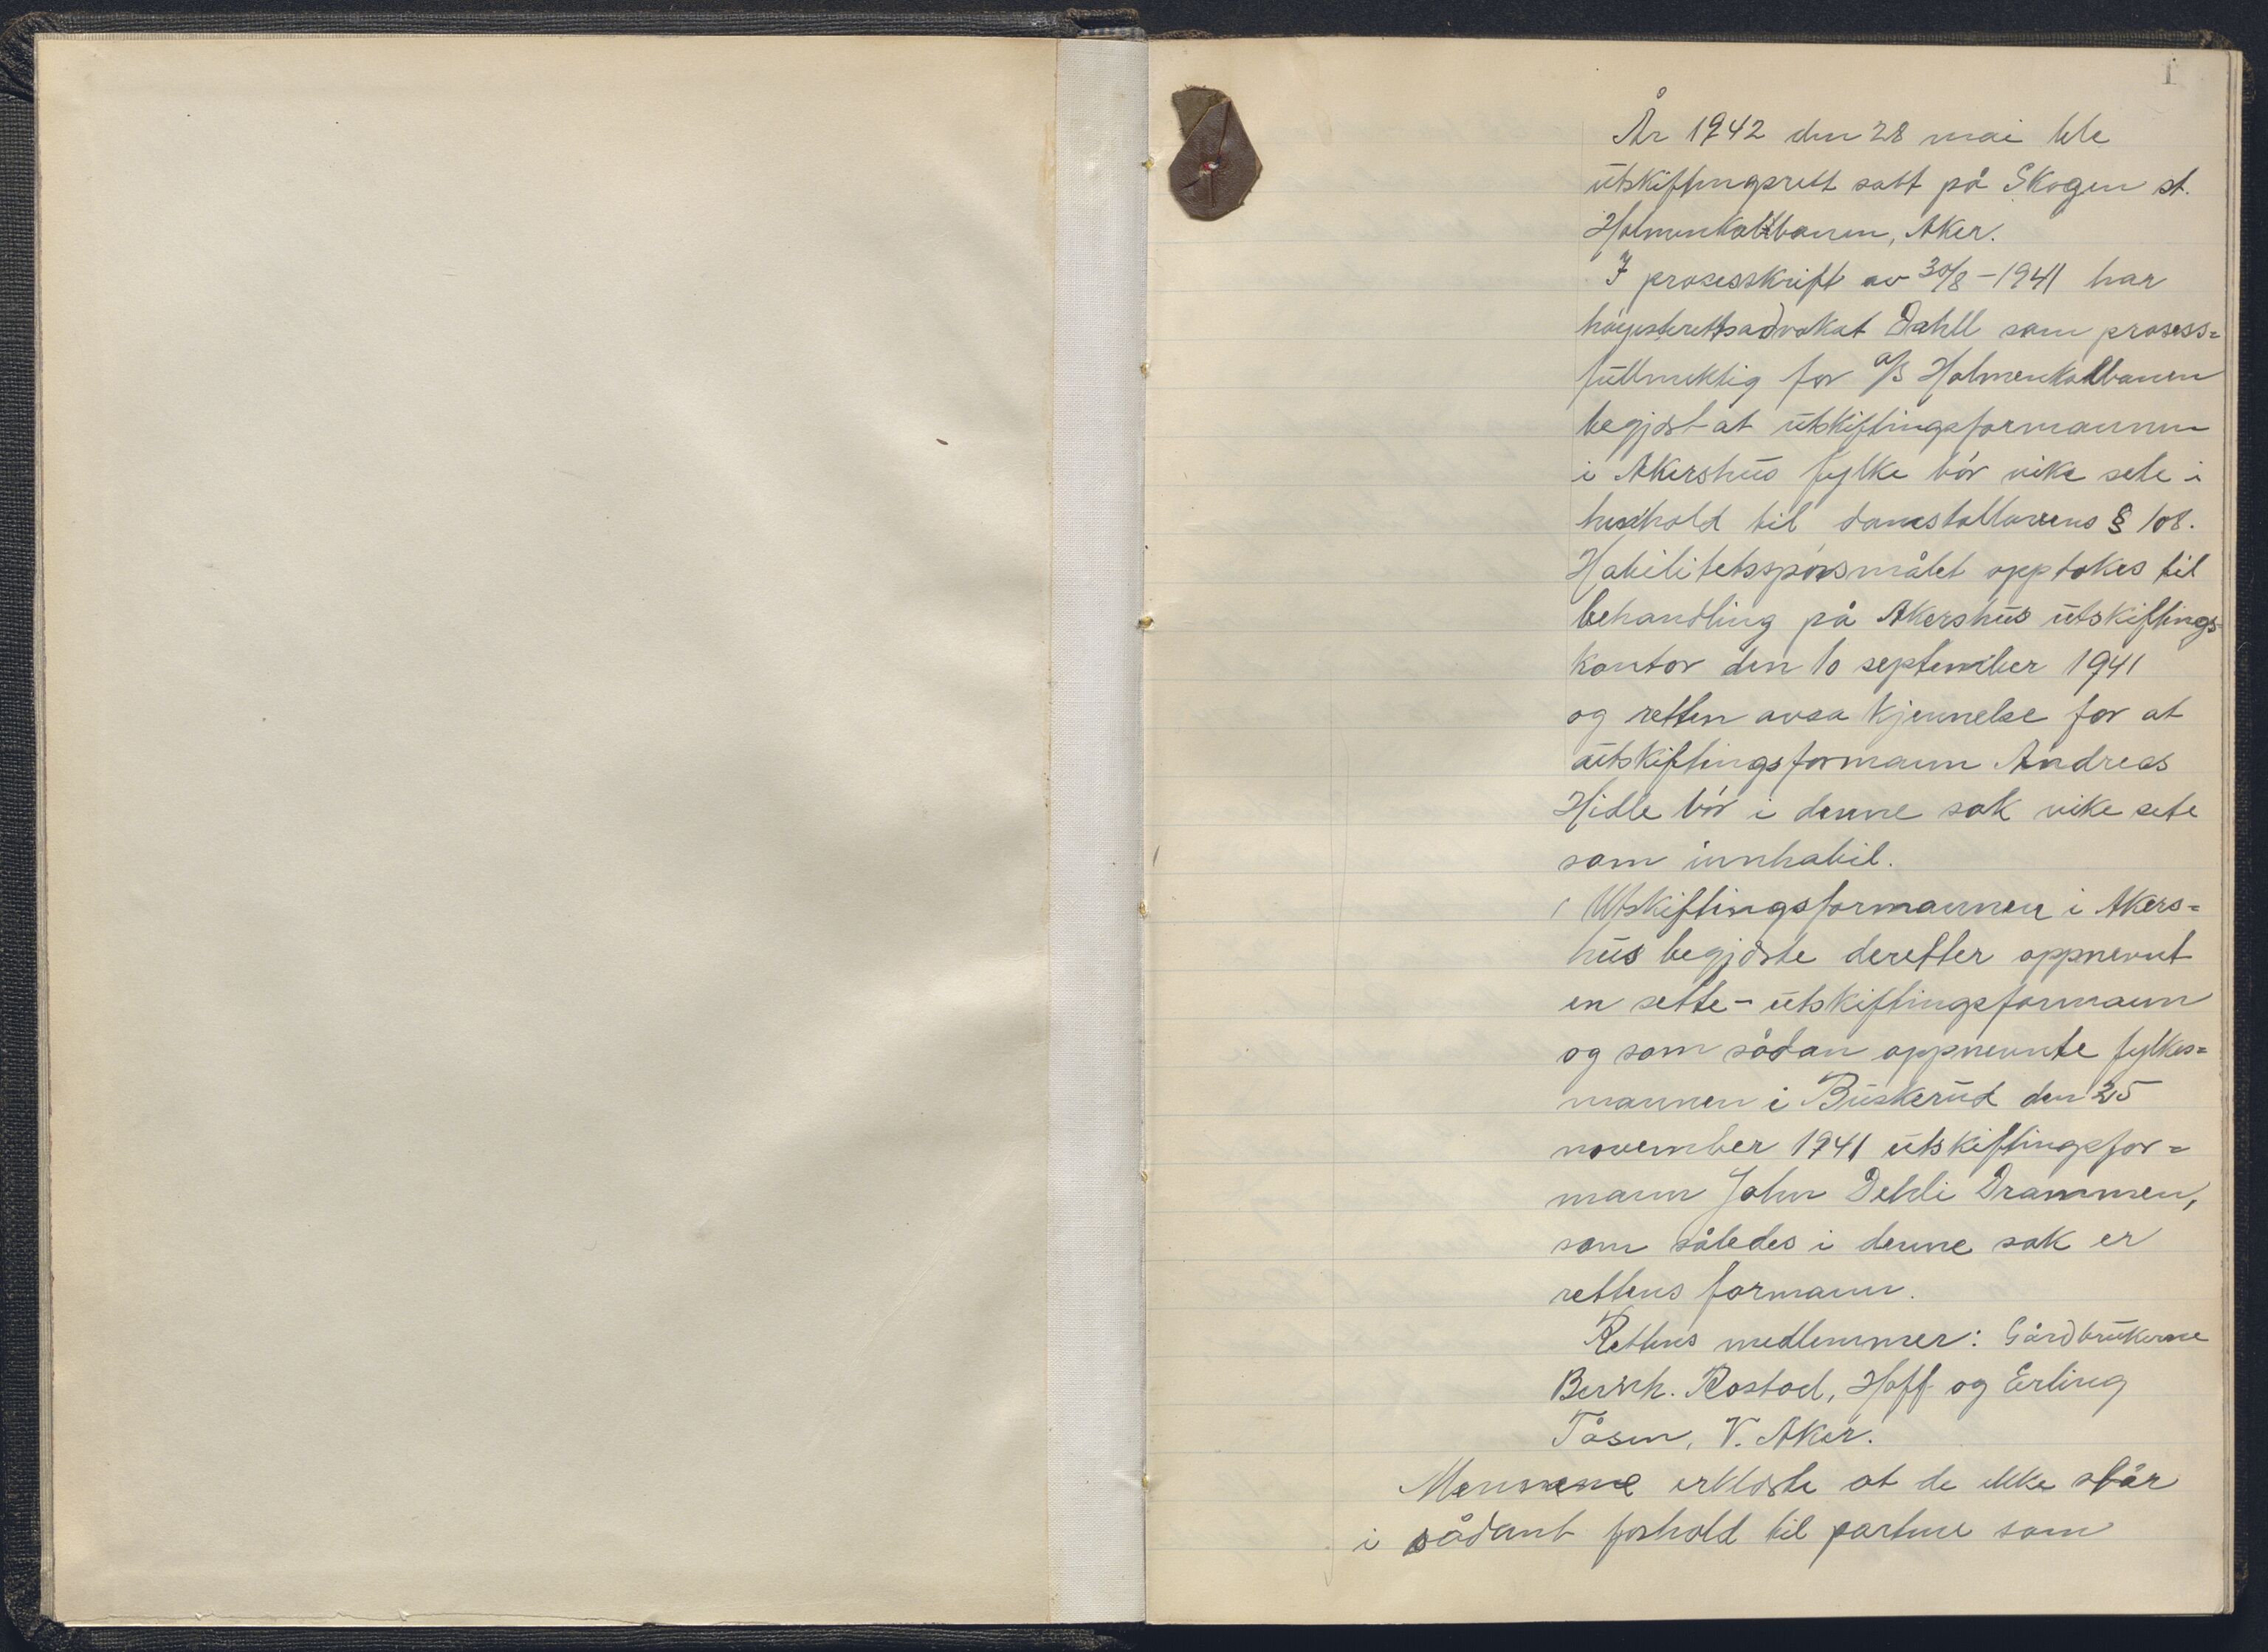 1
År 1942 den 28 mai ble
utskiftingsrett satt på Skogen st.
Holmenkollbanen, Aker.
I prosesskrift av 30/8-1941 har
høyesterettsadvokat Dahll som prosess=
fullmektig for a/s Holmenkollbanen
begjært at utskiftingsformannen
i Akershus fylke bør vike sete i
henhold til domstollovens § 108.
Habilitetsspørsmålet opptokes til
behandling på Akershus utskiftings=
kontor den 10 september 1941
og retten avsa kjennelse for at
utskiftingsformann Andreas
Hidle bør i denne sak vike sete
som innhabil.
Utskiftingsformannen i Akers=
hus begjærte deretter oppnevnt
en sette-utskiftingsformann
og som sådan oppnevnte fylkes=
mannen i Buskerud den 25
november 1941 utskiftingsfor=
mann John Dehli Drammen,
som således i denne sak er
rettens formann.
Rettens medlemmer: Gårdbrukerne
Bernh. Rostad, Hoff og Erling
Tåsen, V. Aker.
Mennene erklærte at de ikke står
i sådant forhold til partene som